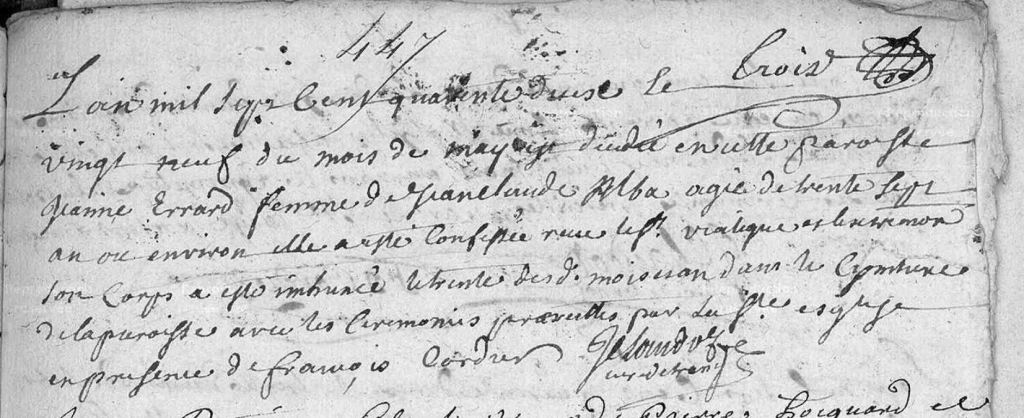 447
Lan mil sept Cent quarente deuse le Croix
vingt neuf du mois de may est décédée en cette paroisse
Jeanne Errard femme de Jean claude Alba agée de trente sept
an ou environ elle a esté Confessée receu le St. viatique et lextremon
son Corps a esté inhumé le trente desd. mois et an dans le Cymtiere
de la paroisse avec les Ceremonies prescrittes par la Ste. esglise
en presence de françois Cordier